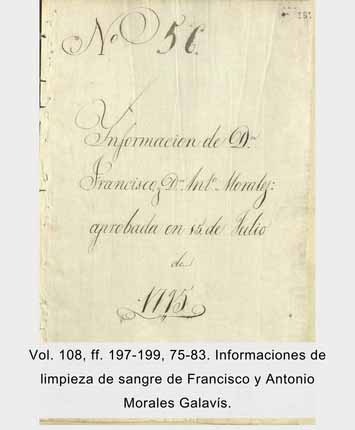 No 56.
Informacion de Dn
Francisco, Dn Anto Moralez:
aprobada en 15 de Julio
de
1795
Vol. 108, ff. 197-199, 75-83. Informaciones de
limpieza de sangre de Francisco y Antonio
Morales Galavís.